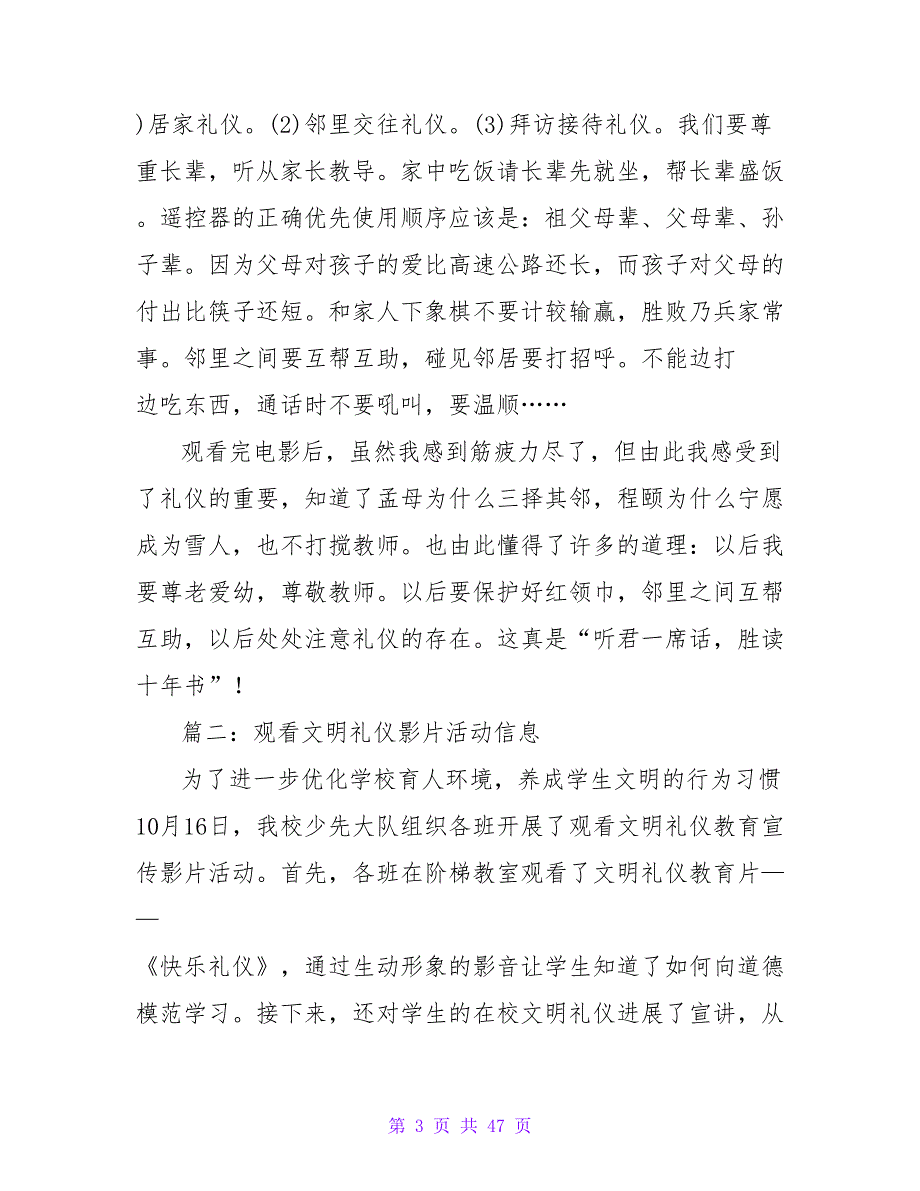 )居家礼仪。(2)邻里交往礼仪。(3)拜访接待礼仪。我们要尊
重长辈，听从家长教导。家中吃饭请长辈先就坐，帮长辈盛饭
。遥控器的正确优先使用顺序应该是：祖父母辈、父母辈、孙
子辈。因为父母对孩子的爱比高速公路还长，而孩子对父母的
付出比筷子还短。和家人下象棋不要计较输赢，胜败乃兵家常
事。邻里之间要互帮互助，碰见邻居要打招呼。不能边打
边吃东西，通话时不要吼叫，要温顺……
观看完电影后，虽然我感到筋疲力尽了，但由此我感受到
了礼仪的重要，知道了孟母为什么三择其邻，程颐为什么宁愿
成为雪人，也不打搅教师。也由此懂得了许多的道理：以后我
要尊老爱幼，尊敬教师。以后要保护好红领巾，邻里之间互帮
互助，以后处处注意礼仪的存在。这真是“听君一席话，胜读
十年书”！
篇二：观看文明礼仪影片活动信息
为了进一步优化学校育人环境，养成学生文明的行为习惯
10月16日，我校少先大队组织各班开展了观看文明礼仪教育宣
传影片活动。首先，各班在阶梯教室观看了文明礼仪教育片—
—
《快乐礼仪》，通过生动形象的影音让学生知道了如何向道德
模范学习。接下来，还对学生的在校文明礼仪进展了宣讲，从
第 3 页 共 47 页